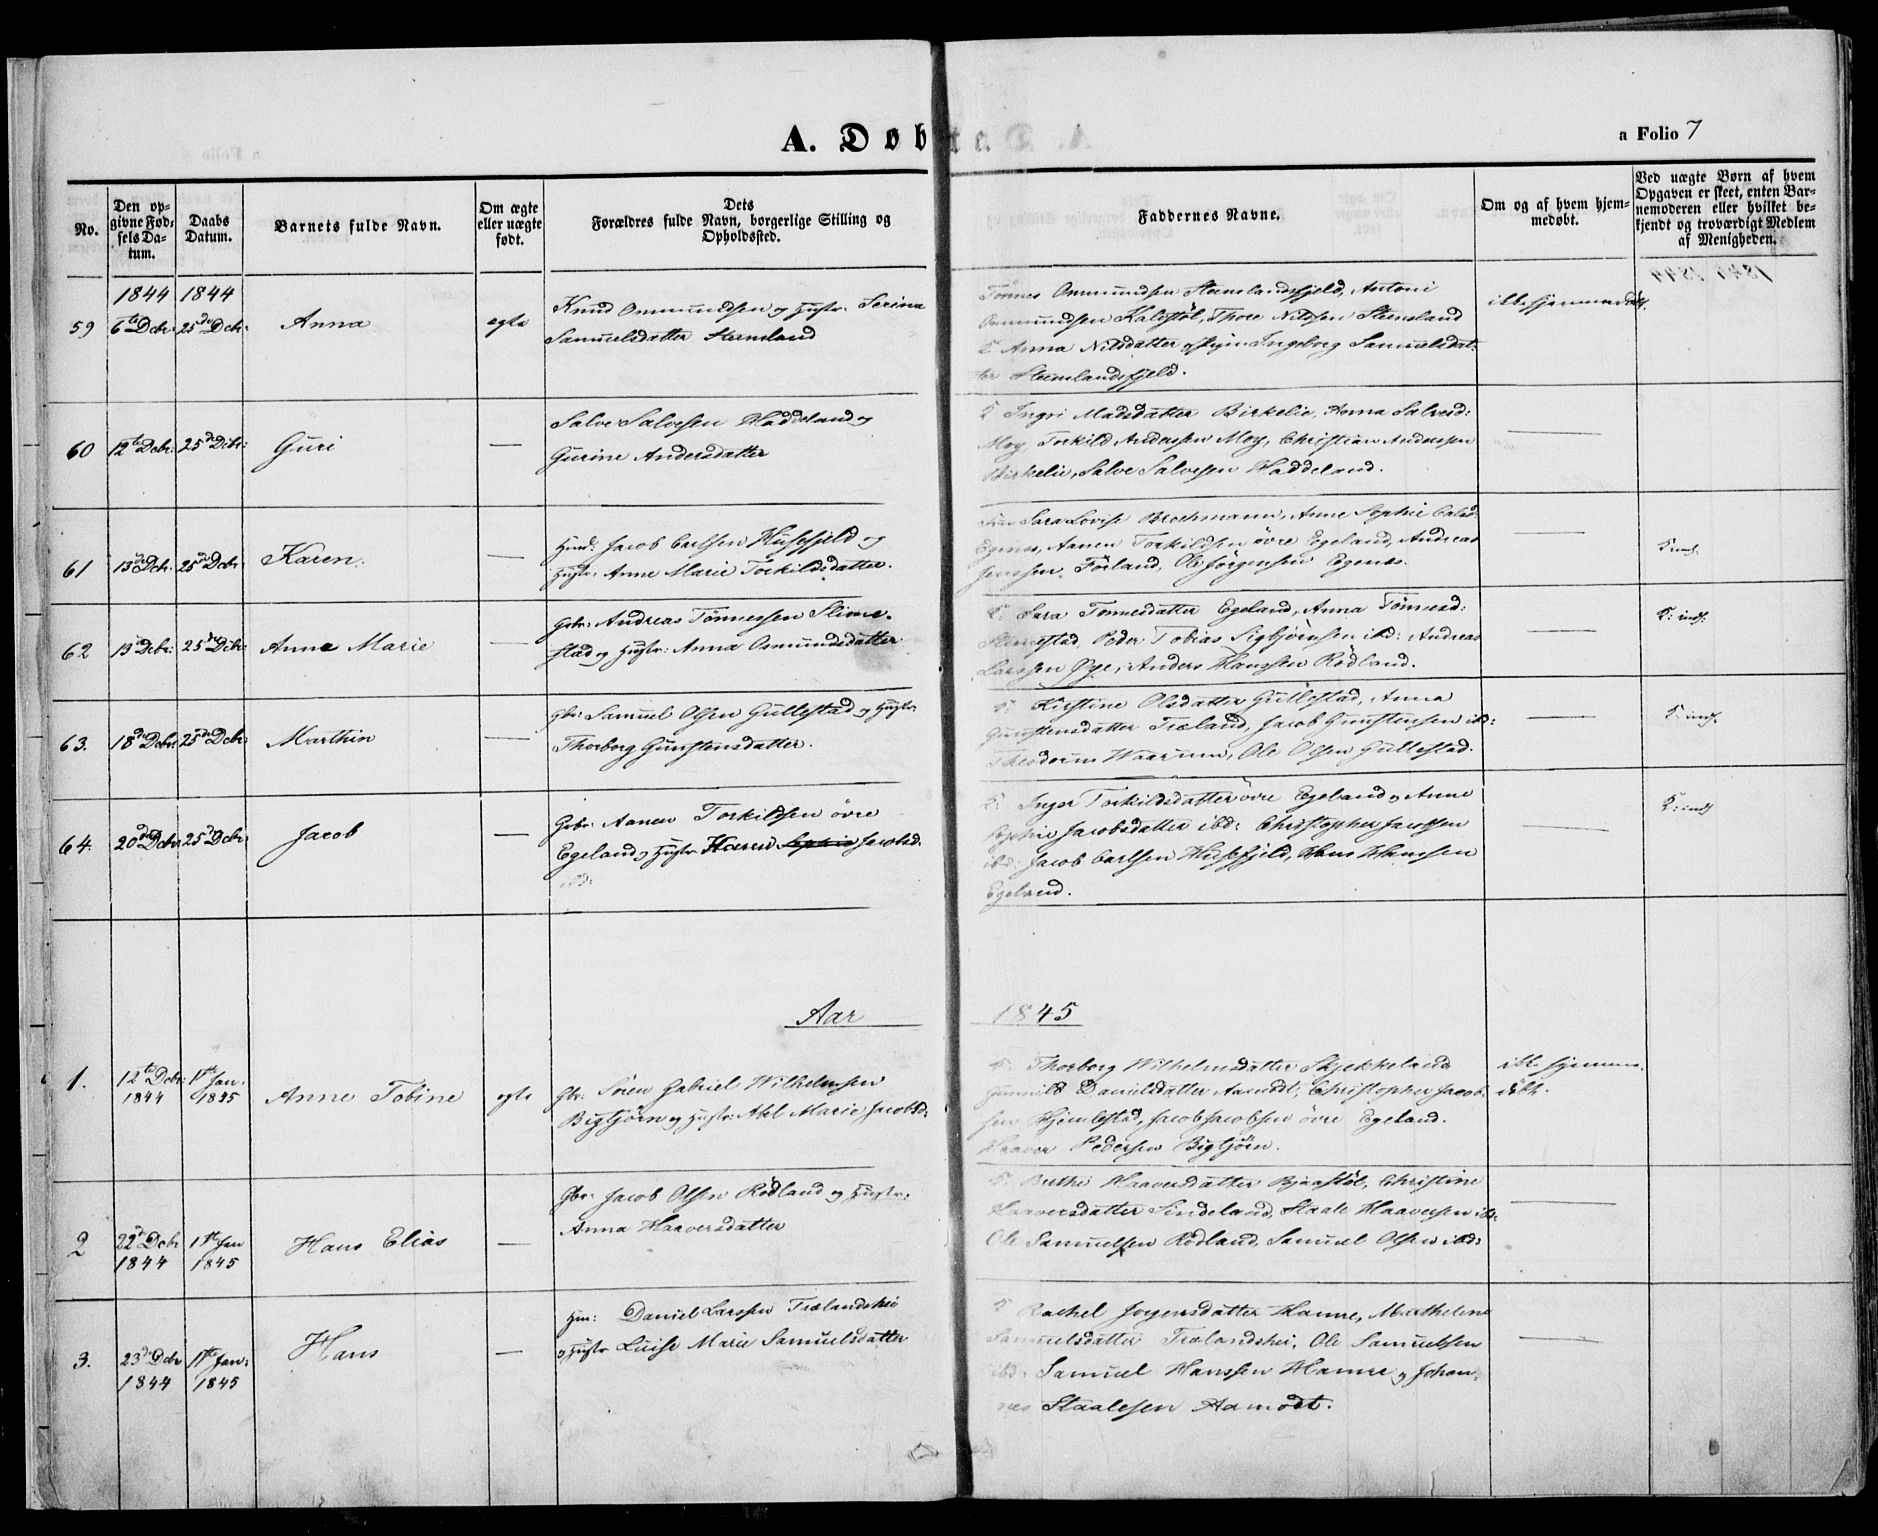 A. Døbte.
a Folio 7
No.
Den opgivne Fødsels Datum.
Daabs Datum.
Barnets fulde Navn.
Om ægte eller uægte født.
Forældres fulde Navn, borgerlige Stilling og Dets Opholdssted.
Faddernes Navne.
Om og af hvem hjemmedøbt.
Ved uægte Børn af hvem Opgaven er skeet, enten Barnemoderen eller hvilket bekjendt og troværdigt Medlem af Menigheden.
1844 1844
59 6te Dcbr: 25de Dcbr: Anna egte
Knud Ommundsen og Hustr: Serina
Samuelsdatter Steensland
Tönnes Ommundsen Steenslandsfjeld, Antoni
Ommundsen Kalestöl, Thore Nilssen Steensland
Anna Nilsdatter Ingeborg Samuelsdat-
ter Steenslandsfjeld.
ikke hjemmedöbt.
60 12te Dcbr: 25de Dcbr: Guri —
Salve Salvesen Haddeland og
Gurine Andersdatter
Ingri Madsdatter Birkelie, Anna Salvesd:
Moy Torkild Anderssen Moy, Christian Anderssen
Birkelie, Salve Salvesen Haddeland.
—
61 13de Dcbr: 25de Dcbr: Karen. —
Huusm: Jacob Carlssen Husefjeld og
Hustr: Anne Marie Torkildsdatter.
Sara Lovise Brochmann, Anne Sophie
Egenes, Aanen Torkildsen övre Egeland, Andreas
Jenssen Förland, Ole Jörgensen Egenes.
—
62 13de Dcbr: 25de Dcbr: Anne Marie —
Gbr: Andreas Tönnessen Slime-
stad og Hustr: Anna Osmundsdatter
K: Sara Tönnesdatter Egeland, Anna Tönnesd:
Slimestad, Peder Tobias Sigbjörnsen ibd: Andreas
Larssen Öye, Anders Hanssen Rödland.
—
K: ind.
63. 18de Dcbr: 25de Dcbr: Marthin —
Gbr: Samuel Olsen Gullestad og Hustr:
Thorborg Gunstensdatter.
Kirstine Olsdatter Gullestad, Anna
Gunstensdatter Træland, Jacob Gunstensen ibd:
Theodorus Waarum, Ole Olsen Gullestad.
—
K: ind.
64. 20de Dcbr: 25de Dcbr: Jacob —
Gbr: Aanen Torkildsen övre
Egeland og Hustr: Karen Sophie Jacobsd:
ibd:
K: Inger Torkildsdatter övre Egeland og Anne
Sophie Jacobsdatter ibd: Christopher Jacobsen
ibd: Jacob Carlsen Husefjeld, Hans Hansen
Egeland.
—
K: ind
Aar 1845
1. 12te Dcbr: 1844 1ste Jan. 1845 Anne Tobine egte
Gbr: Sören Gabriel Wilhelmsen
Bigtjörn og Hustr: Abel Marie Jacobsd:
Thorborg Wilhelmsdatter Skjekkeland
Gunnild Danielsdatter Aamodt, Christopher Jacob-
sen Hjemlestad, Jacob Jacobsen övre Egeland.
Haaver Pedersen Bigtjörn.
ikke hjemme-
döbt.
2 22de Dcbr 1844 1ste Jan 1845 Hans Elias —
Gbr: Jacob Olsen Rödland og Hustr:
Anna Haaversdatter
Berthe Haaversdatter Bjerstöl, Christine
Haaversdatter Sindeland, Staale Haaversen ibd:
Ole Samuelsen Rödland, Samuel Olsen ibd:
—
3. 23de Dcbr 1844 1ste Jan: 1845 Hans —
Hm: Daniel Larssen Trælandshei
og Hustr Luise Marie Samuelsdatter
Rachel Jörgensdatter Hamre, Mathelene
Samuelsdatter Trælandshei, Ole Samuelsen
ibd: Samuel Hanssen Hamre og Johan-
nes Staalesen Aamodt.
—